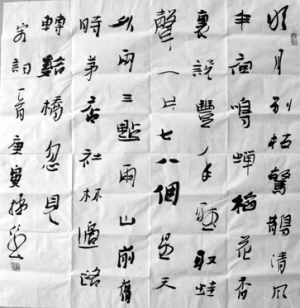 明月別枝驚鵲清風
半夜鳴蟬稻花香
裏說豐年聽取蛙
聲一片七八個星天
外兩三點雨山前舊
時茅店社林邊路
轉谿橋忽見
宋詞一首庚寅